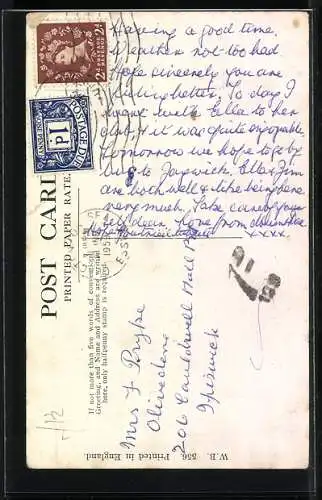 Having a good time.
Weather not too bad
Hope sincerely you are
feeling better. To day I
went with Ella to her
club & it was quite enjoyable
tomorrow we hope to go by
bus to Jaywick. Ella & Jim
are both well & like being here
very much. Take care of your
self dear. Love from
x x x x.
2D POSTAGE REVENUE 2D
POSTAGE DUE
1D
POST CARD
PRINTED PAPER RATE.
If not more than five words of conventional
Greeting, and Name and Address are written
here, only halfpenny stamp is required.
195
ESSEX
1D
Mrs F Pryke
Olivedene
206 Cauldwell Hall Rd
Ipswich
W.B. 556. Printed in England.